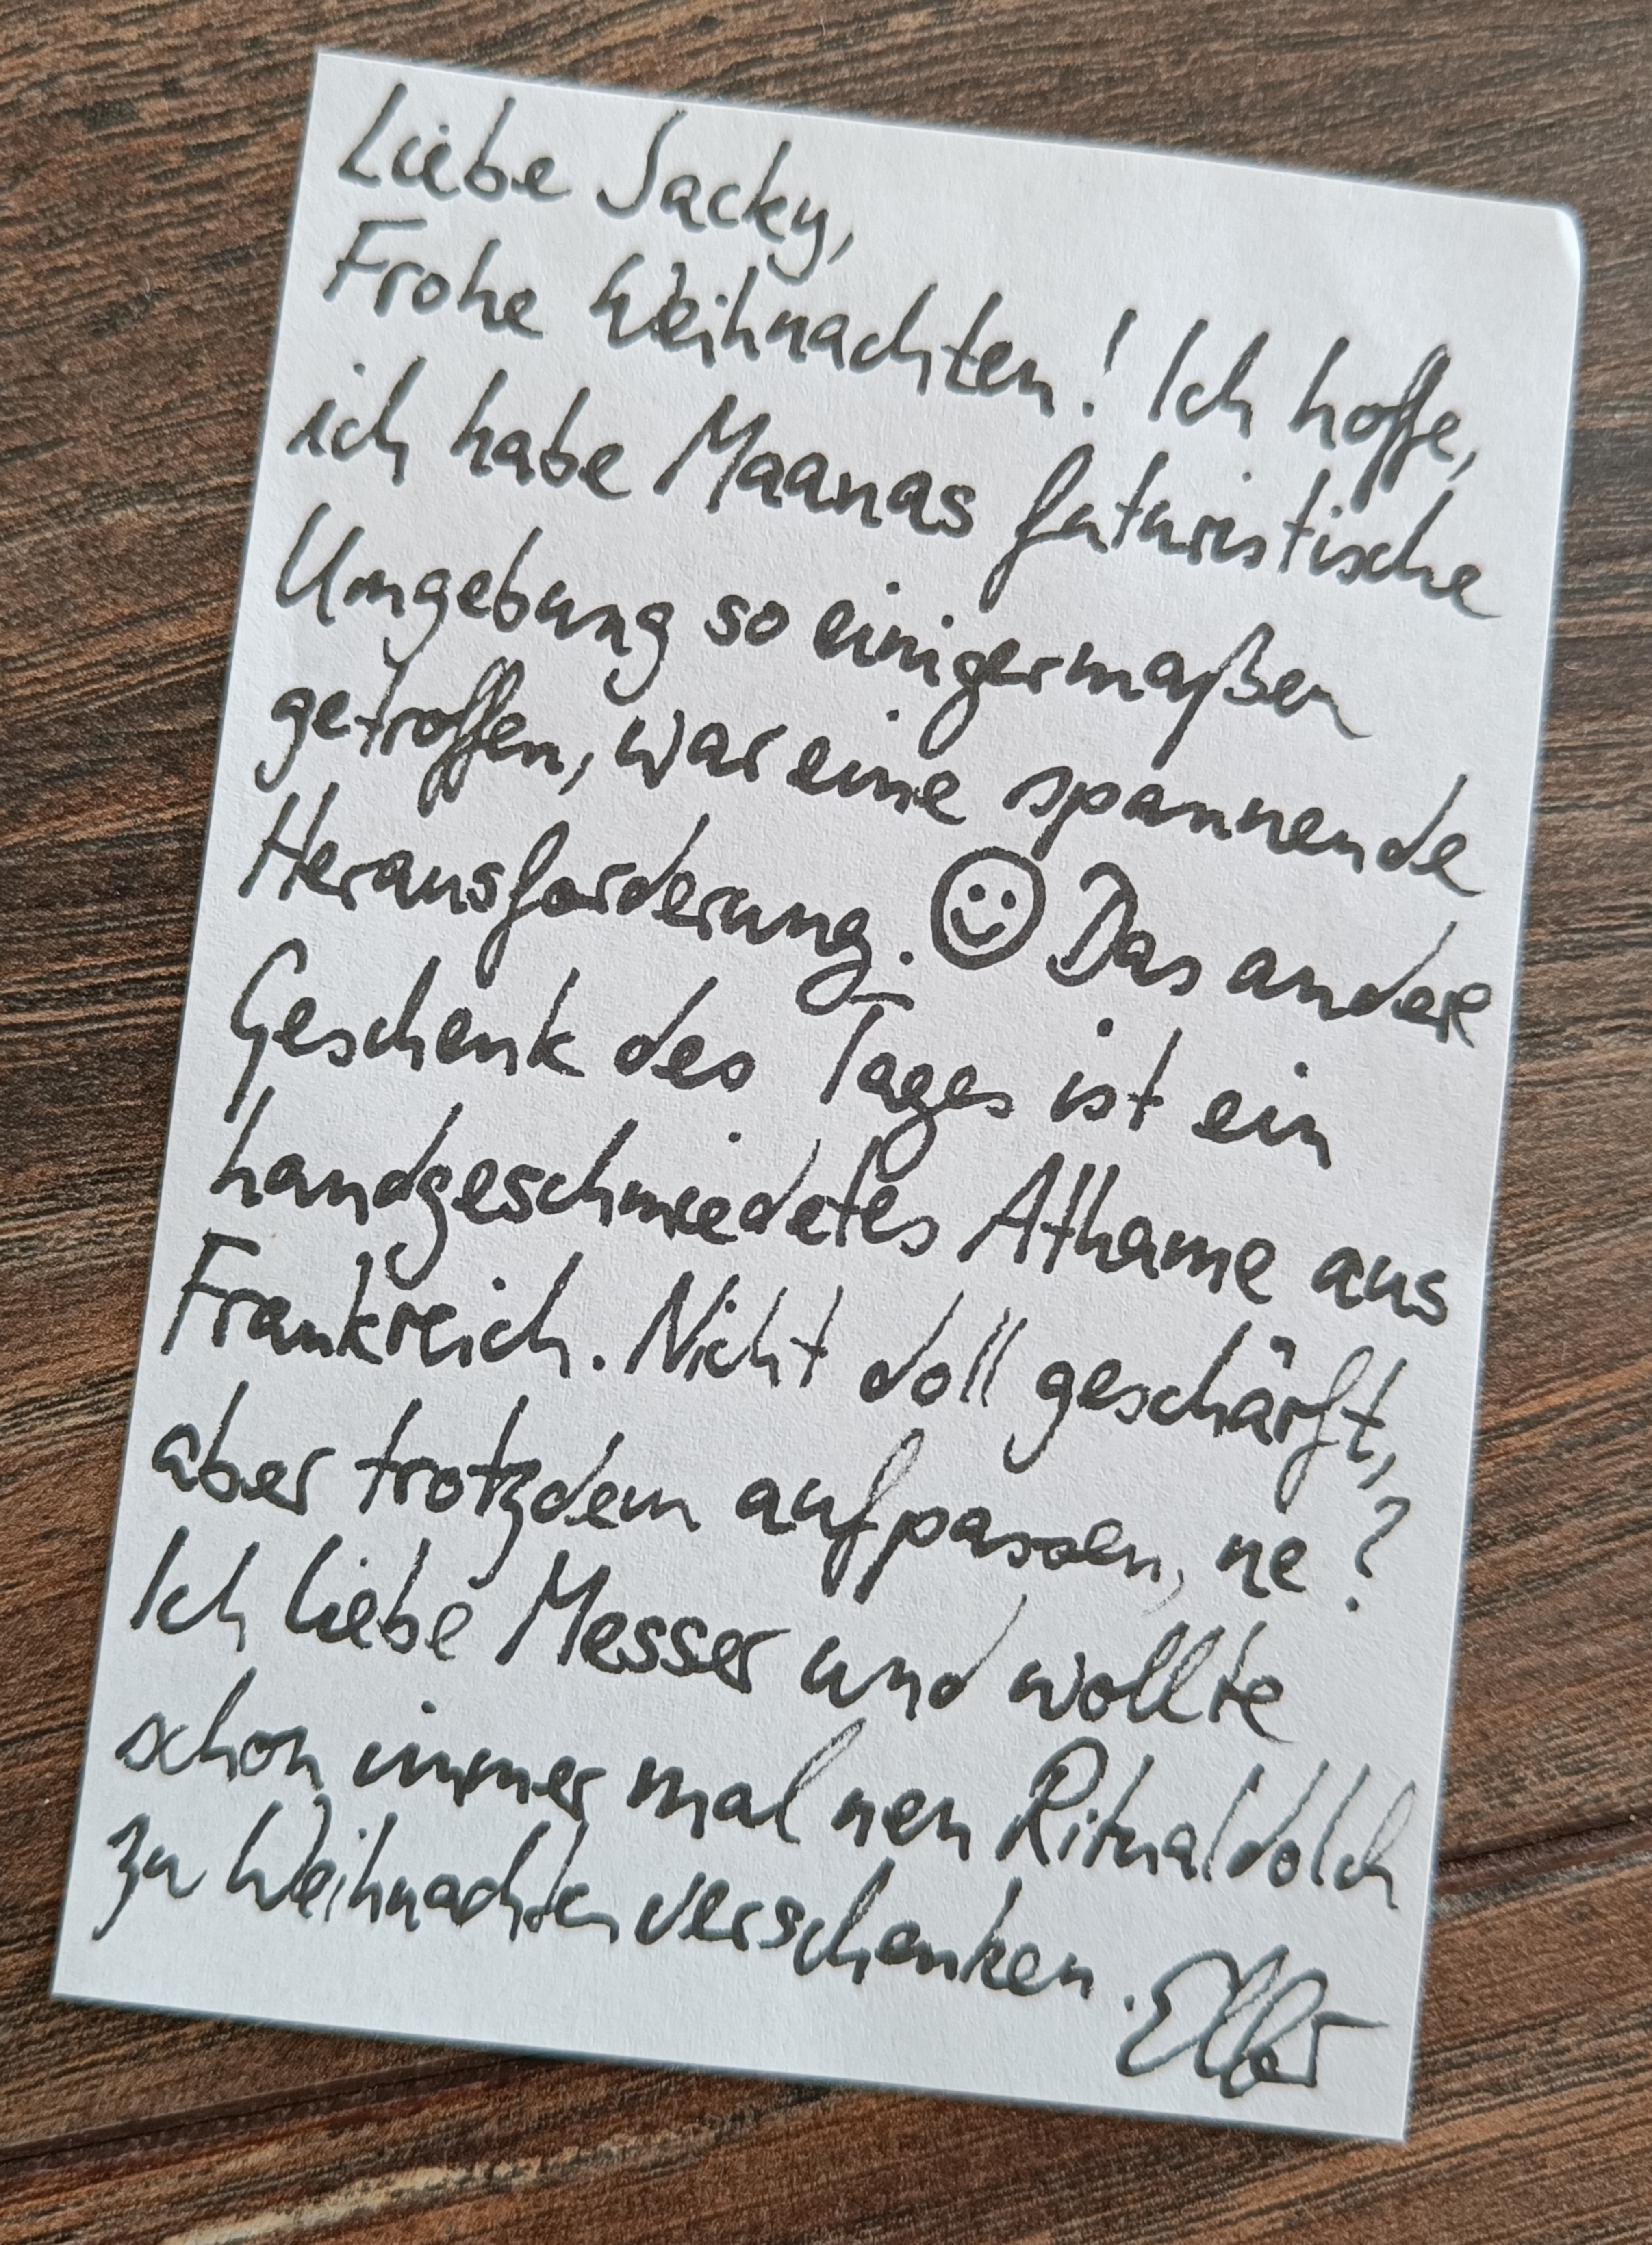 Liebe Jacky,
Frohe Weihnachten! Ich hoffe,
ich habe Maanas futuristische
Umgebung so einigermaßen
getroffen, war eine spannende
Herausforderung. ☺ Das andere
Geschenk des Tages ist ein
handgeschmiedetes Athame aus
Frankreich. Nicht doll geschärft,
aber trotzdem aufpassen, ne?
Ich liebe Messer und wollte
schon immer mal nen Ritualdolch
zu Weihnachten verschenken.